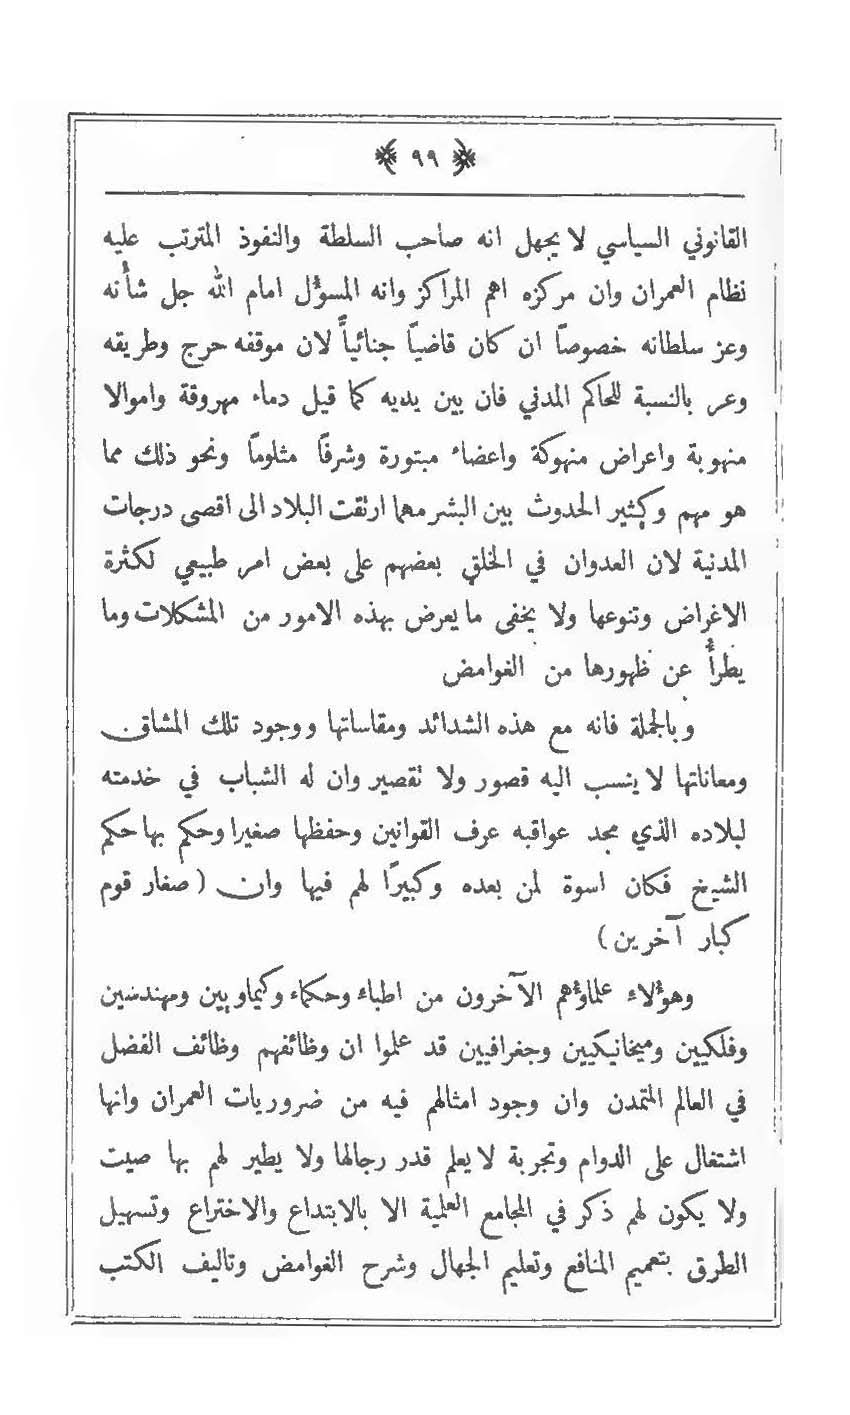 ﴿ ٩٩ ﴾
القانوني السياسي لا يجهل انه صاحب السلطة والنفوذ المترتب عليه
نظام العمران وان مركزه اهم المراكز وانه المسؤل امام الله جل شأنه
وعز سلطانه خصوصاً ان كان قاضياً جنائياً لان موقفه حرج وطريقه
وعر بالنسبة للحاكم المدني فان بين يديه كما قيل دماء مهروقة واموالا
منهوبة واعراض منهوكة واعضاء مبتورة وشرفاً مثلوماً ونحو ذلك مما
هو مهم وكثير الحدوث بين البشر مهما ارتقت البلاد الى اقصى درجات
المدنية لان العدوان في الخلق بعضهم على بعض امر طبيعي لكثرة
الاغراض وتنوعها ولا يخفى ما يعرض بهذه الامور من المشكلات وما
يطرأ عن ظهورها من الغوامض
وبالجملة فانه مع هذه الشدائد ومقاساتها ووجود تلك المشاق
ومعاناتها لا ينسب اليه قصور ولا تقصير وان له الشباب في خدمته
لبلاده الذي مجد عواقبه عرف القوانين وحفظها صغيرا وحكم بها حكم
الشيخ فكان اسوة لمن بعده وكبيرًا لهم فيها وان ( صغار قوم
كبار آخرين )
وهؤلاء علماؤهم الآخرون من اطباء وحكماء وكيماويين ومهندسين
وفلكيين وميخانيكيين وجغرافيين قد علموا ان وظائفهم وظائف الفضل
في العالم المتمدن وان وجود امثالهم فيه من ضروريات العمران وانها
اشتغال على الدوام وتجربة لا يعلم قدر رجالها ولا يطير لهم بها صيت
ولا يكون لهم ذكر في المجامع العلمية الا بالابتداع والاختراع وتسهيل
الطرق بتعميم المنافع وتعليم الجهال وشرح الغوامض وتاليف الكتب